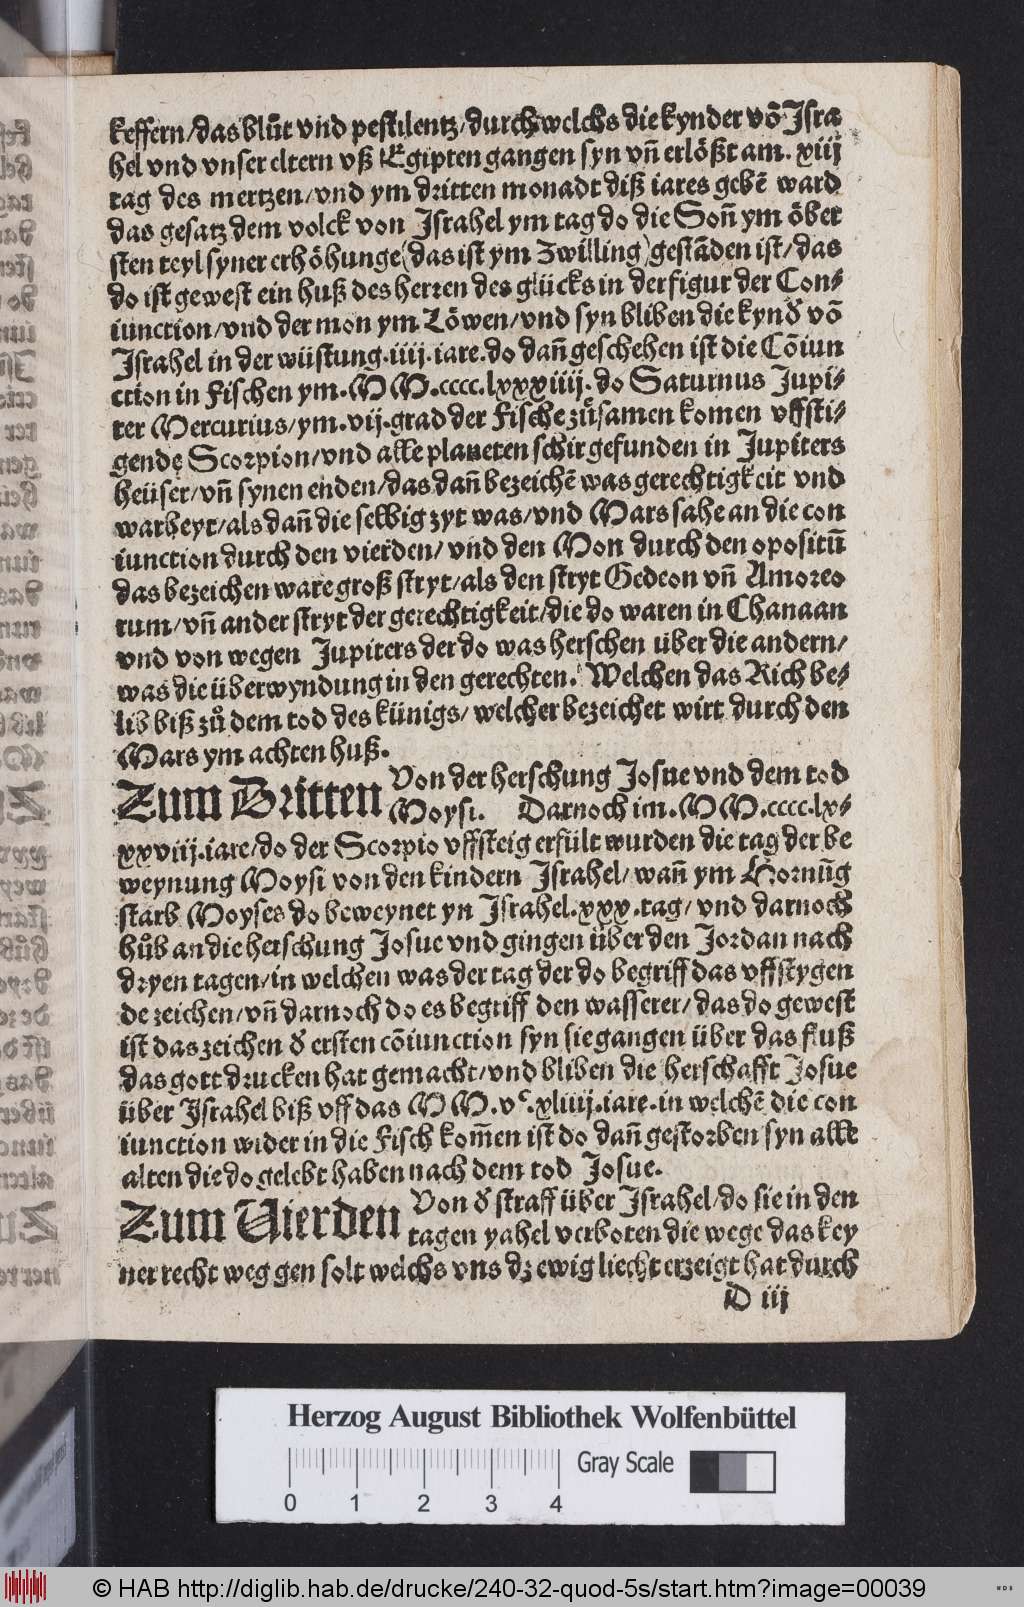 keffern/das blůt vnd pestilentz/durch welchs die kynder võ Isra
hel vnd vnser eltern vß Egipten gangen syn vñ erlößt am. xiij
tag des mertzen/vnd ym dritten monadt diß iares gebẽ ward
das gesatz dem volck von Israhel ym tag do die Soñ ym öber
sten teyl syner erhöhunge (das ist ym Zwilling) gestãden ist/das
do ist gewest ein huß des herren des glücks in der figur der Con-
iunction/vnd der mon ym Löwen/vnd syn bliben die kynd̕ võ
Israhel in der wüstung.iiij.iare.do dañ geschehen ist die Cõiun
ction in Fischen ym.MM.cccc.lxxxiiij.do Saturnus Jupi-
ter Mercurius/ym.vij.grad der Fische zůsamen komen vffsti-
gende Scorpion/vnd alle planeten schir gefunden in Jupiters
heüser/vñ synen enden/das dañ bezeichẽ was gerechtigkeit vnd
warheyt/als dañ die selbig zyt was/vnd Mars sahe an die con
iunction durch den vierden/vnd den Mon durch den opositũ
das bezeichen ware groß stryt/als den stryt Gedeon vñ Amoreo
rum/vñ ander stryt der gerechtigkeit/die do waren in Chanaan
vnd von wegen Jupiters der do was herschen über die andern/
was die überwyndung in den gerechten. Welchen das Rich be-
lib biß zů dem tod des künigs/welcher bezeichet wirt durch den
Mars ym achten huß.
Zum Dritten Von der herschung Josue vnd dem tod
Moysi. Darnoch im.MM.cccc.lx-
xxviij.iare/do der Scorpio vffsteig erfült wurden die tag der be
weynung Moysi von den kindern Israhel/wañ ym Hornũg
starb Moyses do beweynet yn Israhel.xxx.tag/vnd darnoch
hůb an die herschung Josue vnd gingen über den Jordan nach
dryen tagen/in welchen was der tag der do begriff das vffstygen
de zeichen/vñ darnoch do es begriff den wasserer/das do gewest
ist das zeichen d̕ ersten cõiunction syn sie gangen über das fluß
das gott drucken hat gemacht/vnd bliben die herschafft Josue
über Israhel biß vff das MM.vᶜ.xliiij.iare.in welchẽ die con
iunction wider in die Fisch kom̃en ist do dañ gestorben syn alle
alten die do gelebt haben nach dem tod Josue.
Zum Vierden Von d̕ straff über Israhel/do sie in den
tagen yahel verboten die wege das key
ner recht weg gen solt welchs vns dz ewig liecht erzeigt hat durch
D iij
Herzog August Bibliothek Wolfenbüttel
Gray Scale
0 1 2 3 4
© HAB http://diglib.hab.de/drucke/240-32-quod-5s/start.htm?image=00039